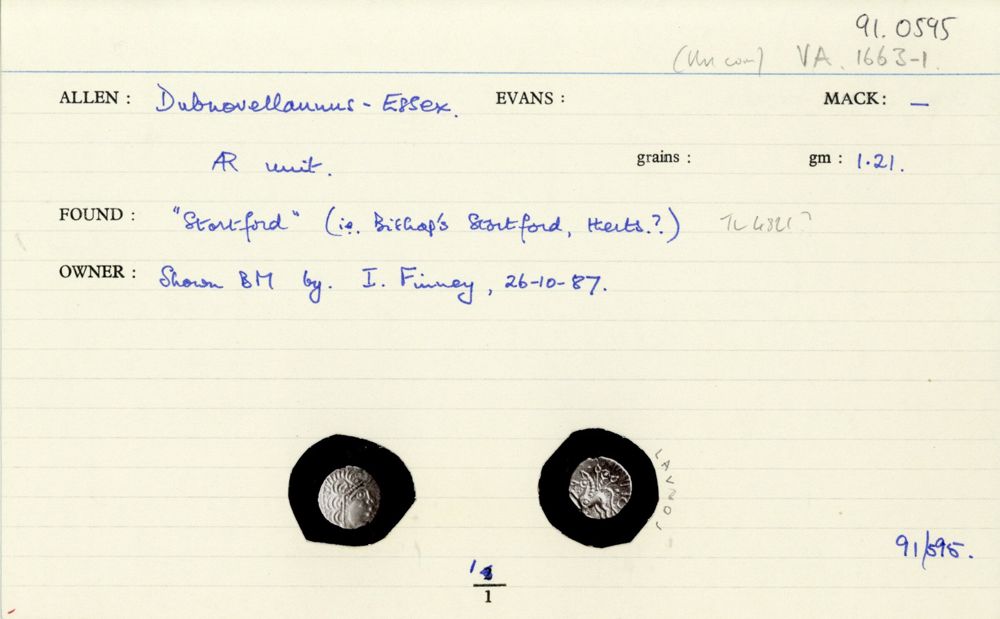 91.0595
VA. 1663-1.
ALLEN : Dubnovellaunus - Essex. EVANS : MACK: —
AR unit. grains : gm : 1.21.
FOUND : "Stortford" (ie. Bishop's Stortford, Herts.?) TL 4821?
OWNER : Shown BM by. I. Finney, 26-10-87.
91/595.
1
1